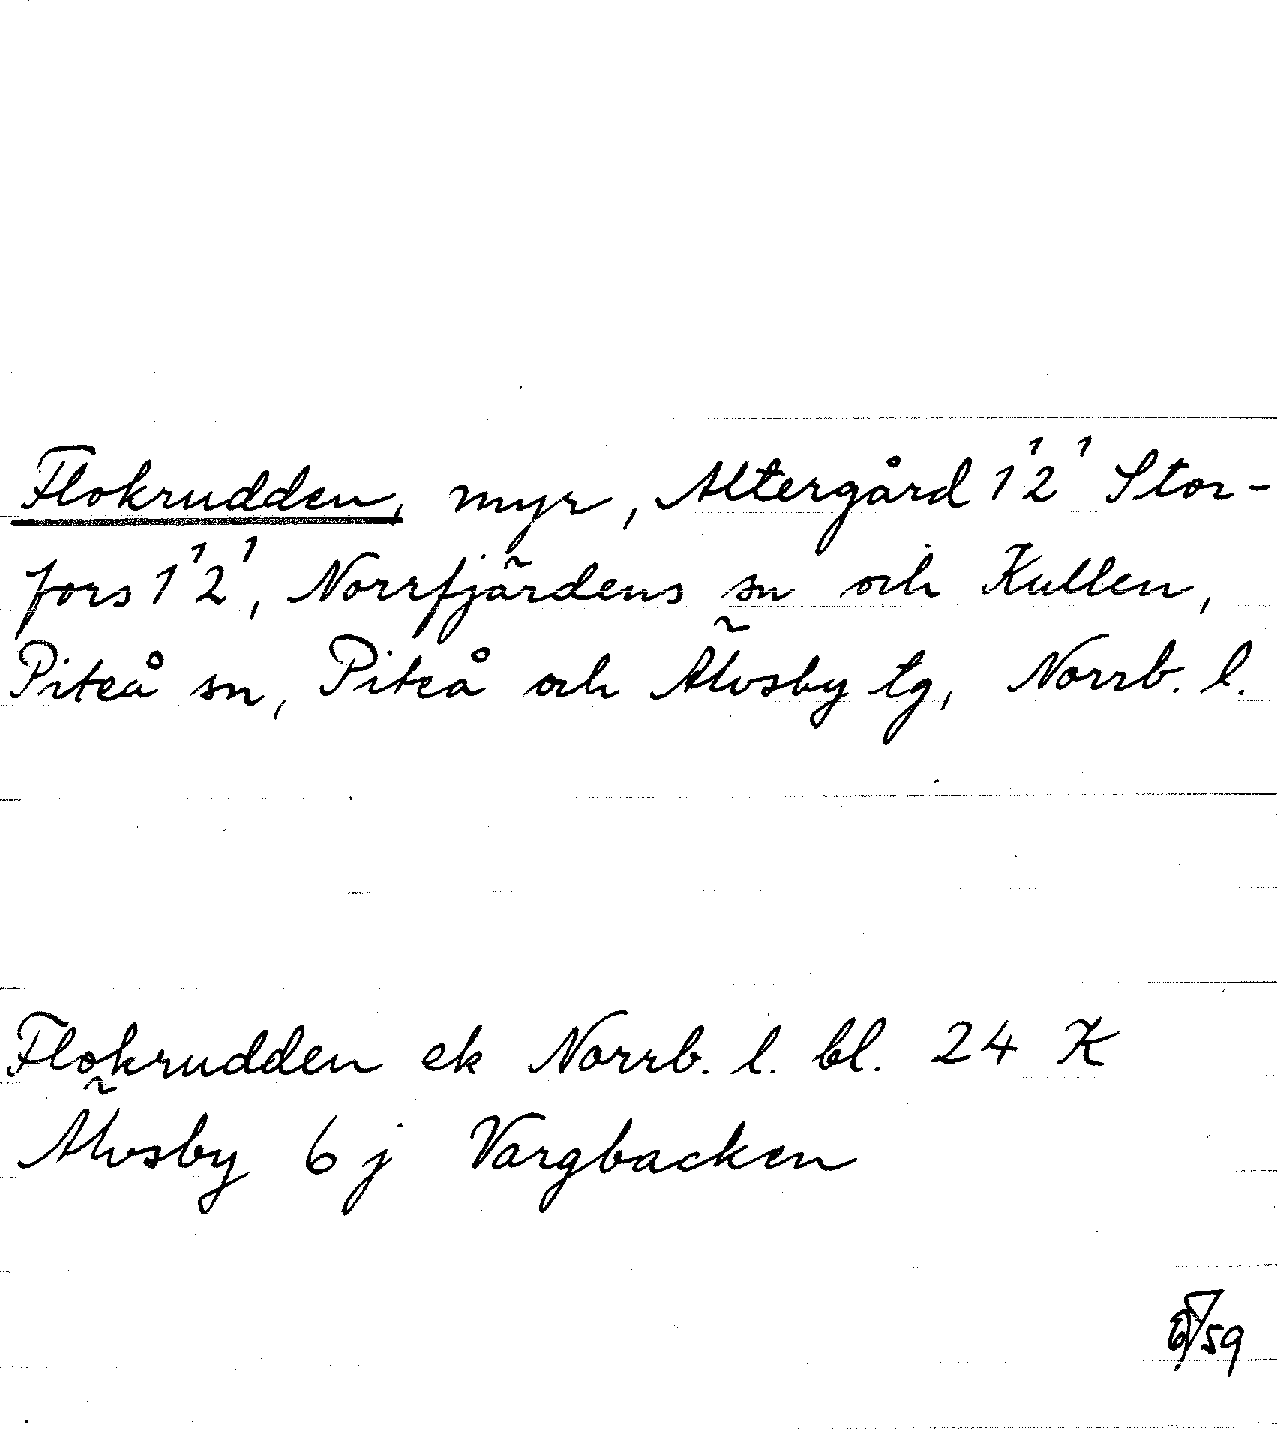 Flokrudden, myr, Altergård 1¹2¹ Stor-
fors 1¹2¹, Norrfjärdens sn och Kullen,
Piteå sn, Piteå och Älvsby tg, Norrb. l.
Flokrudden ek Norrb. l. bl. 24 K
Älvsby 6 j Vargbacken